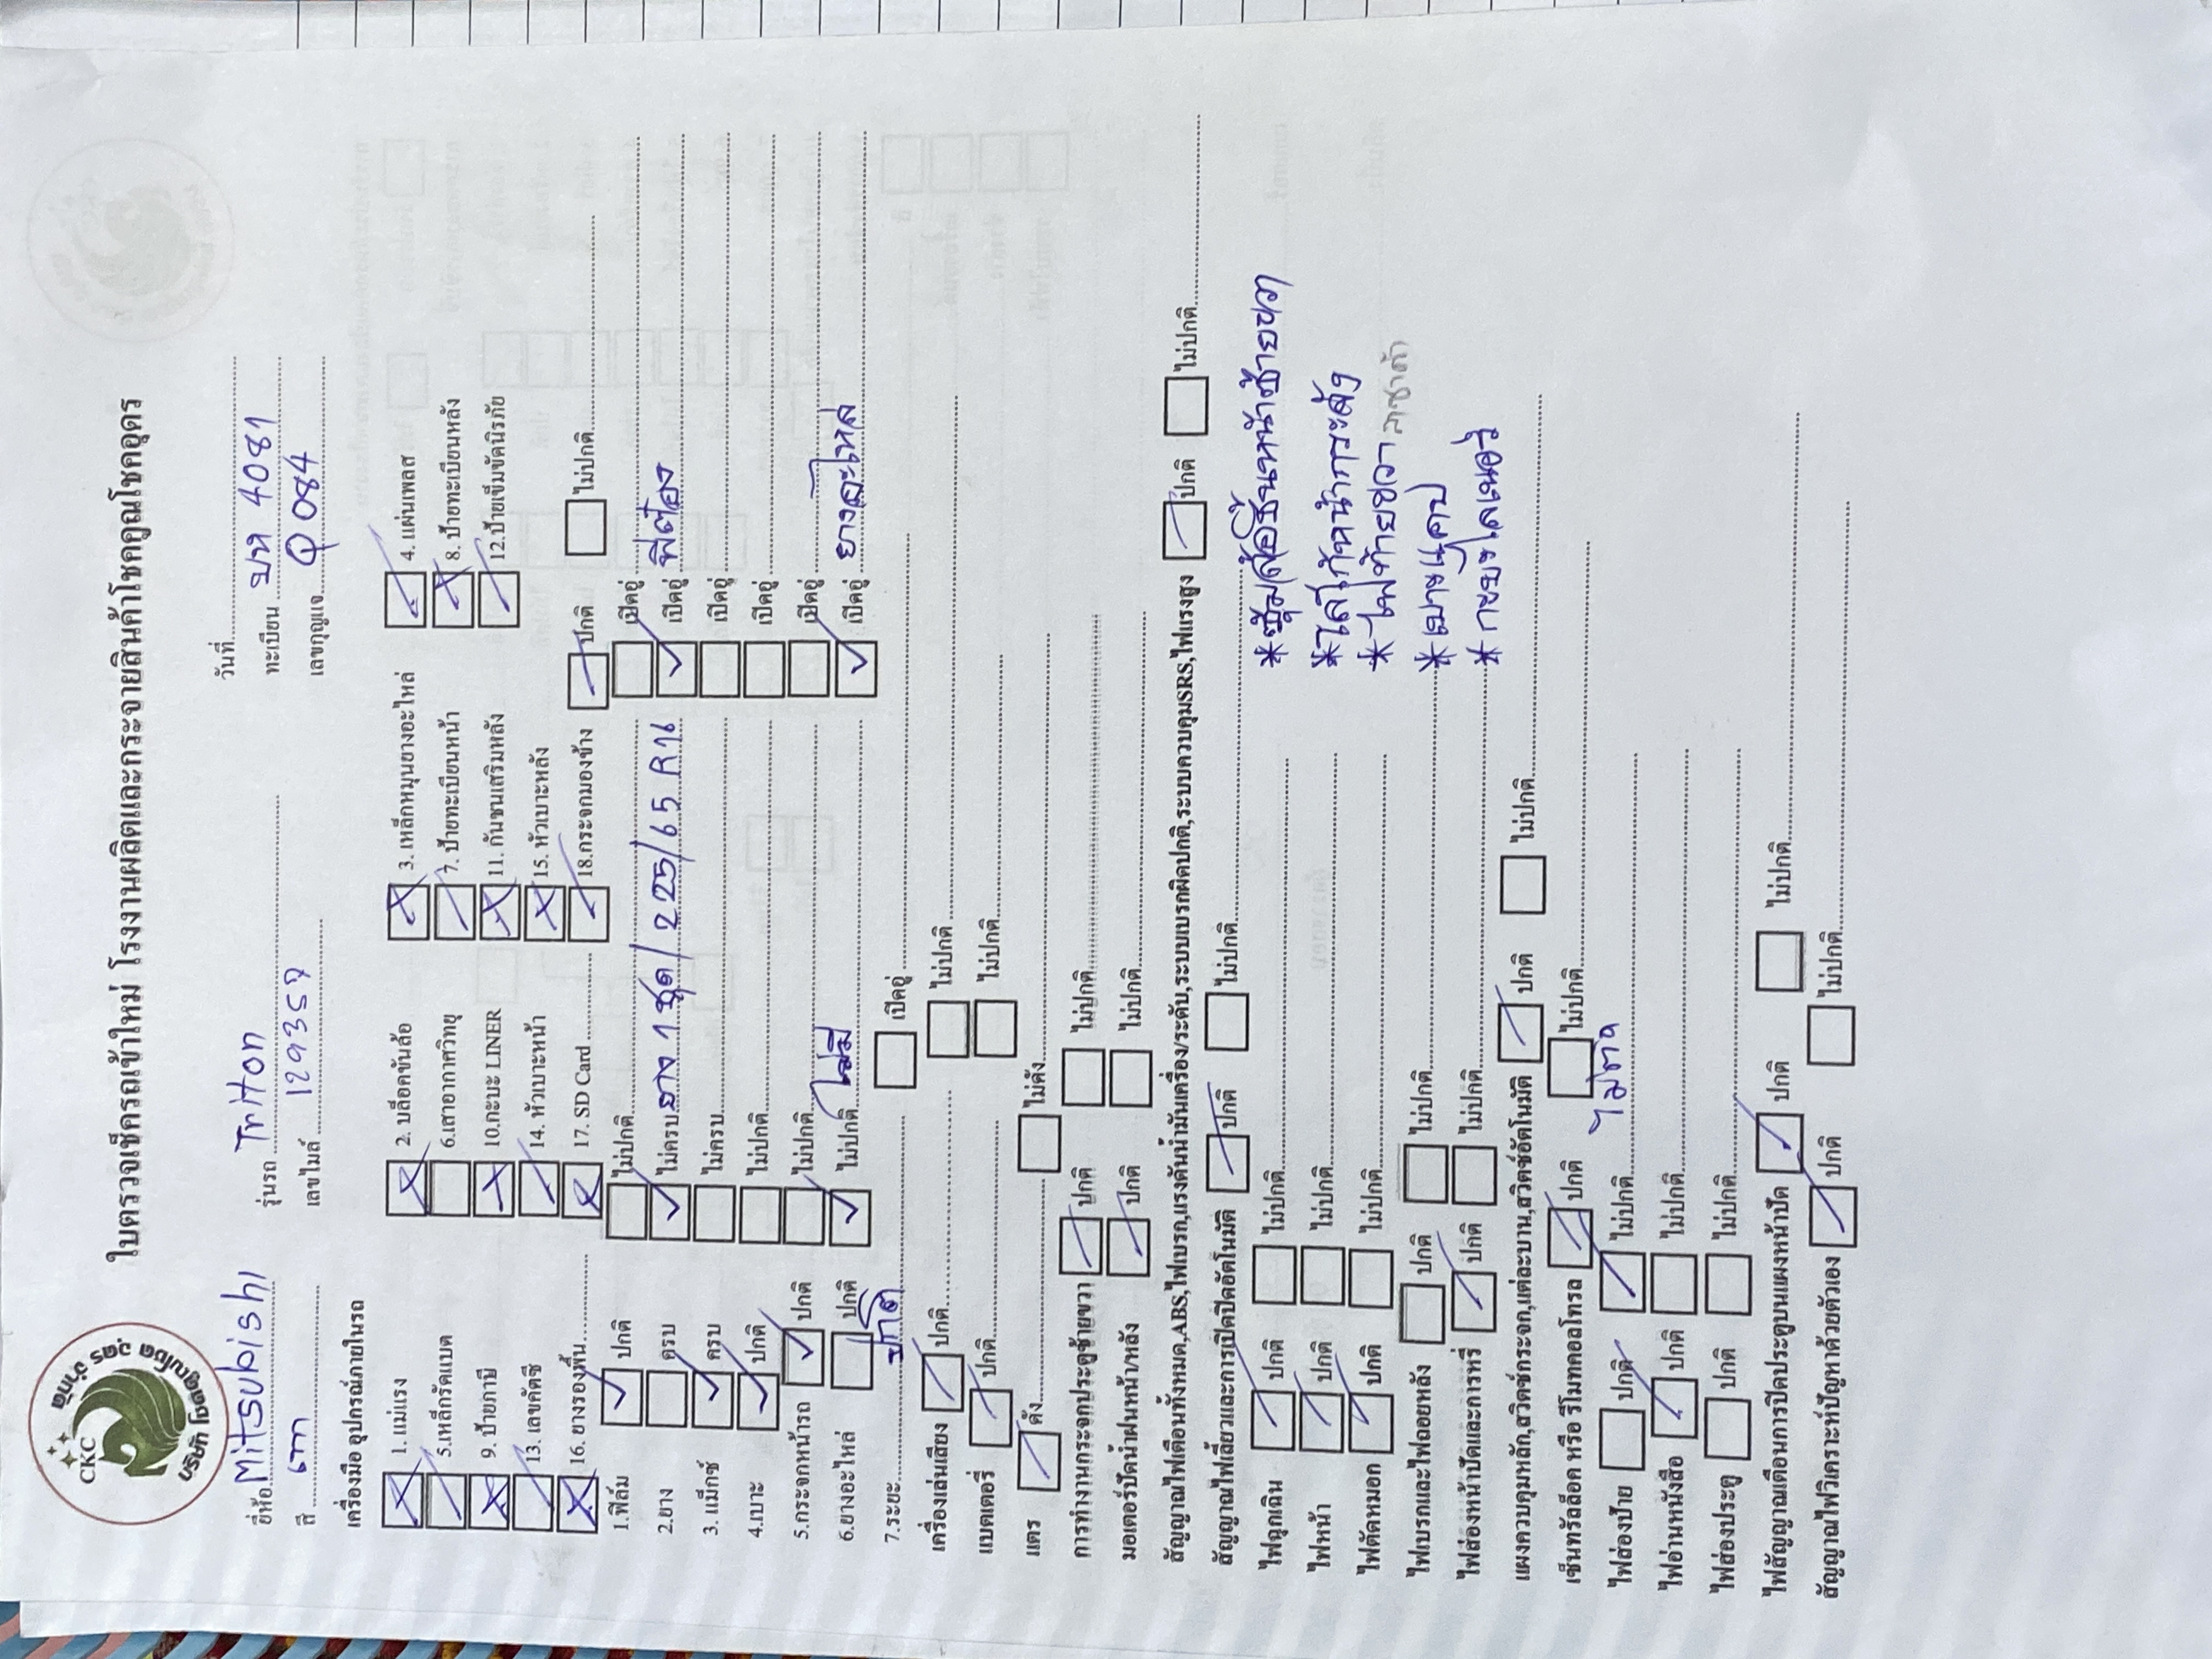 CKC
บริษัท โชคคูณโชค อุดร จำกัด
ใบตรวจเช็ครถเข้าใหม่ โรงงานผลิตและกระจายสินค้าโชคคูณโชคอุดร
วันที่
ยี่ห้อ Mitsubishi รุ่นรถ Triton ทะเบียน บห 4081
สี เทา เลขไมล์ 129357 เลขกุญแจ Q 084
เครื่องมือ อุปกรณ์ภายในรถ
1. แม่แรง 2. บล็อคขันล้อ 3. เหล็กหมุนยางอะไหล่ 4. แผ่นเพลส
5.เหล็กรัดแบต 6.เสาอากาศวิทยุ 7. ป้ายทะเบียนหน้า 8. ป้ายทะเบียนหลัง
9. ป้ายภาษี 10.กะบะ LINER 11. กันชนเสริมหลัง 12.ป้ายเข็มขัดนิรภัย
13. เลขคัตซี 14. หัวเบาะหน้า 15. หัวเบาะหลัง
16. ยางรองพื้น 17. SD Card 18.กระจกมองข้าง ปกติ ไม่ปกติ
1.ฟิล์ม ปกติ ไม่ปกติ เบิคอู่
2.ยาง ครบ ไม่ครบ ยาง 1 ชุด / 225/65 R16 เบิคอู่
3. แม็กซ์ ครบ ไม่ครบ เบิคอู่
4.เบาะ ปกติ ไม่ปกติ เบิคอู่
5.กระจกหน้ารถ ปกติ ไม่ปกติ เบิคอู่
6.ยางอะไหล่ ปกติ ไม่ปกติ ไม่มี เบิคอู่ ยางอะไหล่
7.ระยะ ปกติ เบิคอู่
เครื่องเล่นเสียง ปกติ ไม่ปกติ
แบตเตอรี่ ปกติ ไม่ปกติ
แตร ดัง ไม่ดัง
การทำงานกระจกประตูซ้ายขวา ปกติ ไม่ปกติ
มอเตอร์ปัดน้ำฝนหน้า/หลัง ปกติ ไม่ปกติ
สัญญาณไฟเตือนทั้งหมด,ABS,ไฟเบรก,แรงดันน้ำมันเครื่อง/ระดับ,ระบบเบรกผิดปกติ,ระบบควบคุมSRS,ไฟแรงสูง ปกติ ไม่ปกติ
สัญญาณไฟเลี้ยวและการเปิดปิดอัตโนมัติ ปกติ ไม่ปกติ
ไฟฉุกเฉิน ปกติ ไม่ปกติ *ซุ้มล้อธินหน้าซ้ายขวา
ไฟหน้า ปกติ ไม่ปกติ
ไฟตัดหมอก ปกติ ไม่ปกติ *ไฟท้ายขวา
ไฟเบรกและไฟถอยหลัง ปกติ ไม่ปกติ *ฝาแคป
ไฟส่องหน้าปัดและการหรี่ ปกติ ไม่ปกติ
แผงควบคุมหลัก,สวิตช์กระจก,แต่ละบาน,สวิตช์อัตโนมัติ ปกติ ไม่ปกติ
เซ็นทรัลล็อค หรือ รีโมทคอลโทรล ปกติ ไม่ปกติ
ไฟส่องป้าย ปกติ ไม่ปกติ ไม่ติด
ไฟอ่านหนังสือ ปกติ ไม่ปกติ
ไฟส่องประตู ปกติ ไม่ปกติ
ไฟสัญญาณเตือนการปิดประตูบนแผงหน้าปัด ปกติ ไม่ปกติ
สัญญาณไฟวิเคราะห์ปัญหาด้วยตัวเอง ปกติ ไม่ปกติ